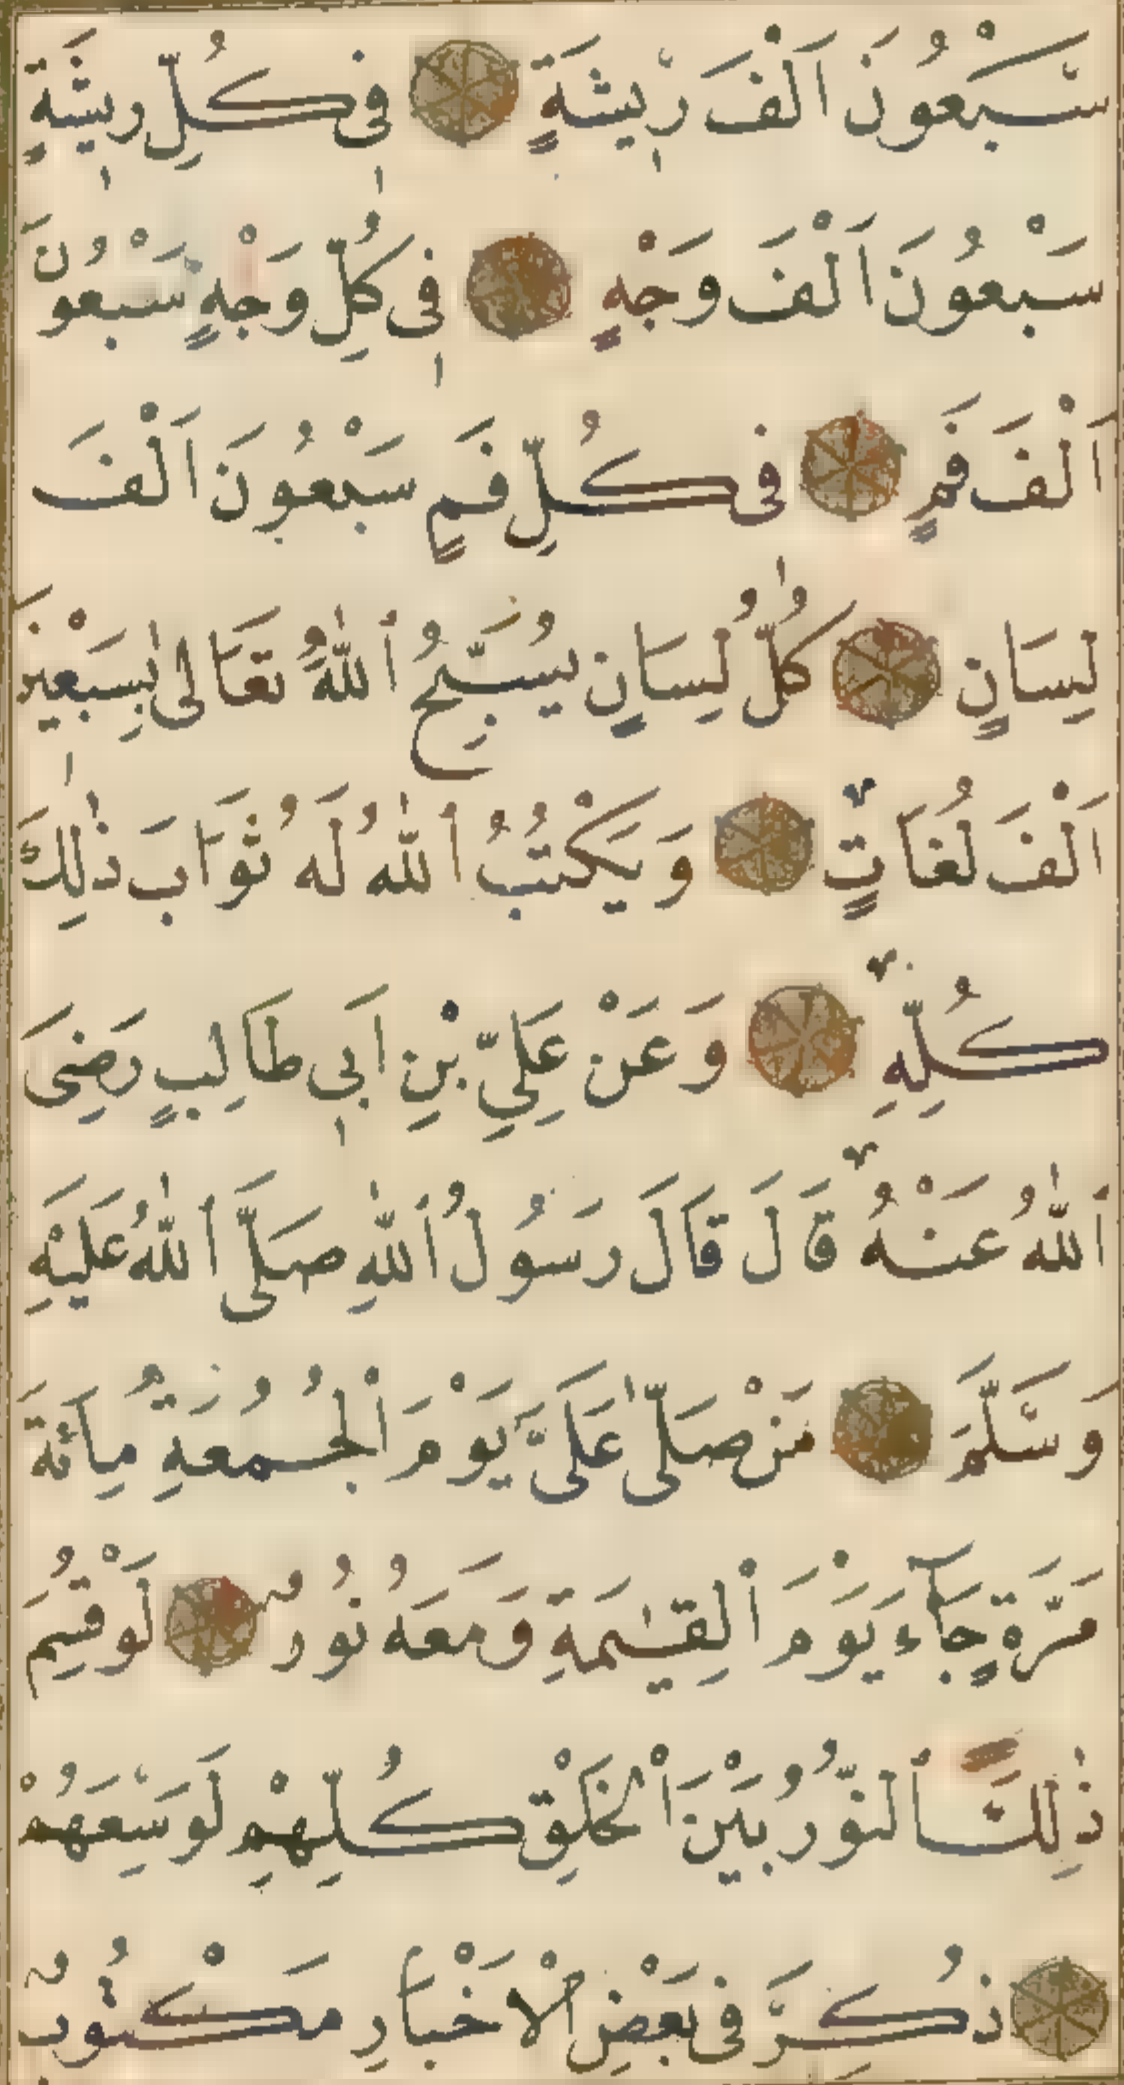 سَبْعُونَ اَلْفَ رٖيشَةٍ فٖى كُلِّ رٖيشَةٍ
سَبْعُونَ اَلْفَ وَجْهٍ فٖى كُلِّ وَجْهٍ سَبْعُونَ
اَلْفَ فَمٍ فٖى كُلِّ فَمٍ سَبْعُونَ اَلْفَ
لِسَانٍ كُلُّ لِسَانٍ يُسَبِّحُ ٱللّٰهَ تَعَالٰى بِسَبْعٖينَ
اَلْفَ لُغَاتٍ وَيَكْتُبُ ٱللّٰهُ لَهُ ثَوَابَ ذٰلِكَ
كُلِّهِ وَعَنْ عَلِيِّ بْنِ اَبٖى طَالِبٍ رَضِىَ
ٱللّٰهُ عَنْهُ قَالَ قَالَ رَسُولُ ٱللّٰهِ صَلَّى ٱللّٰهُ عَلَيْهِ
وَسَلَّمَ مَنْ صَلّٰى عَلَىَّ يَوْمَ اْلجُمُعَةِ مِائَةَ
مَرَّةٍ جَآءَ يَوْمَ اْلقِيٰمَةِ وَمَعَهُ نُورٌ لَوْ قُسِمَ
ذٰلِكَ ٱلنُّورُ بَيْنَ اْلخَلْقِ كُلِّهِمْ لَوَسِعَهُمْ
ذُكِرَ فٖى بَعْضِ اْلاَخْبَارِ مَكْتُوبٌ